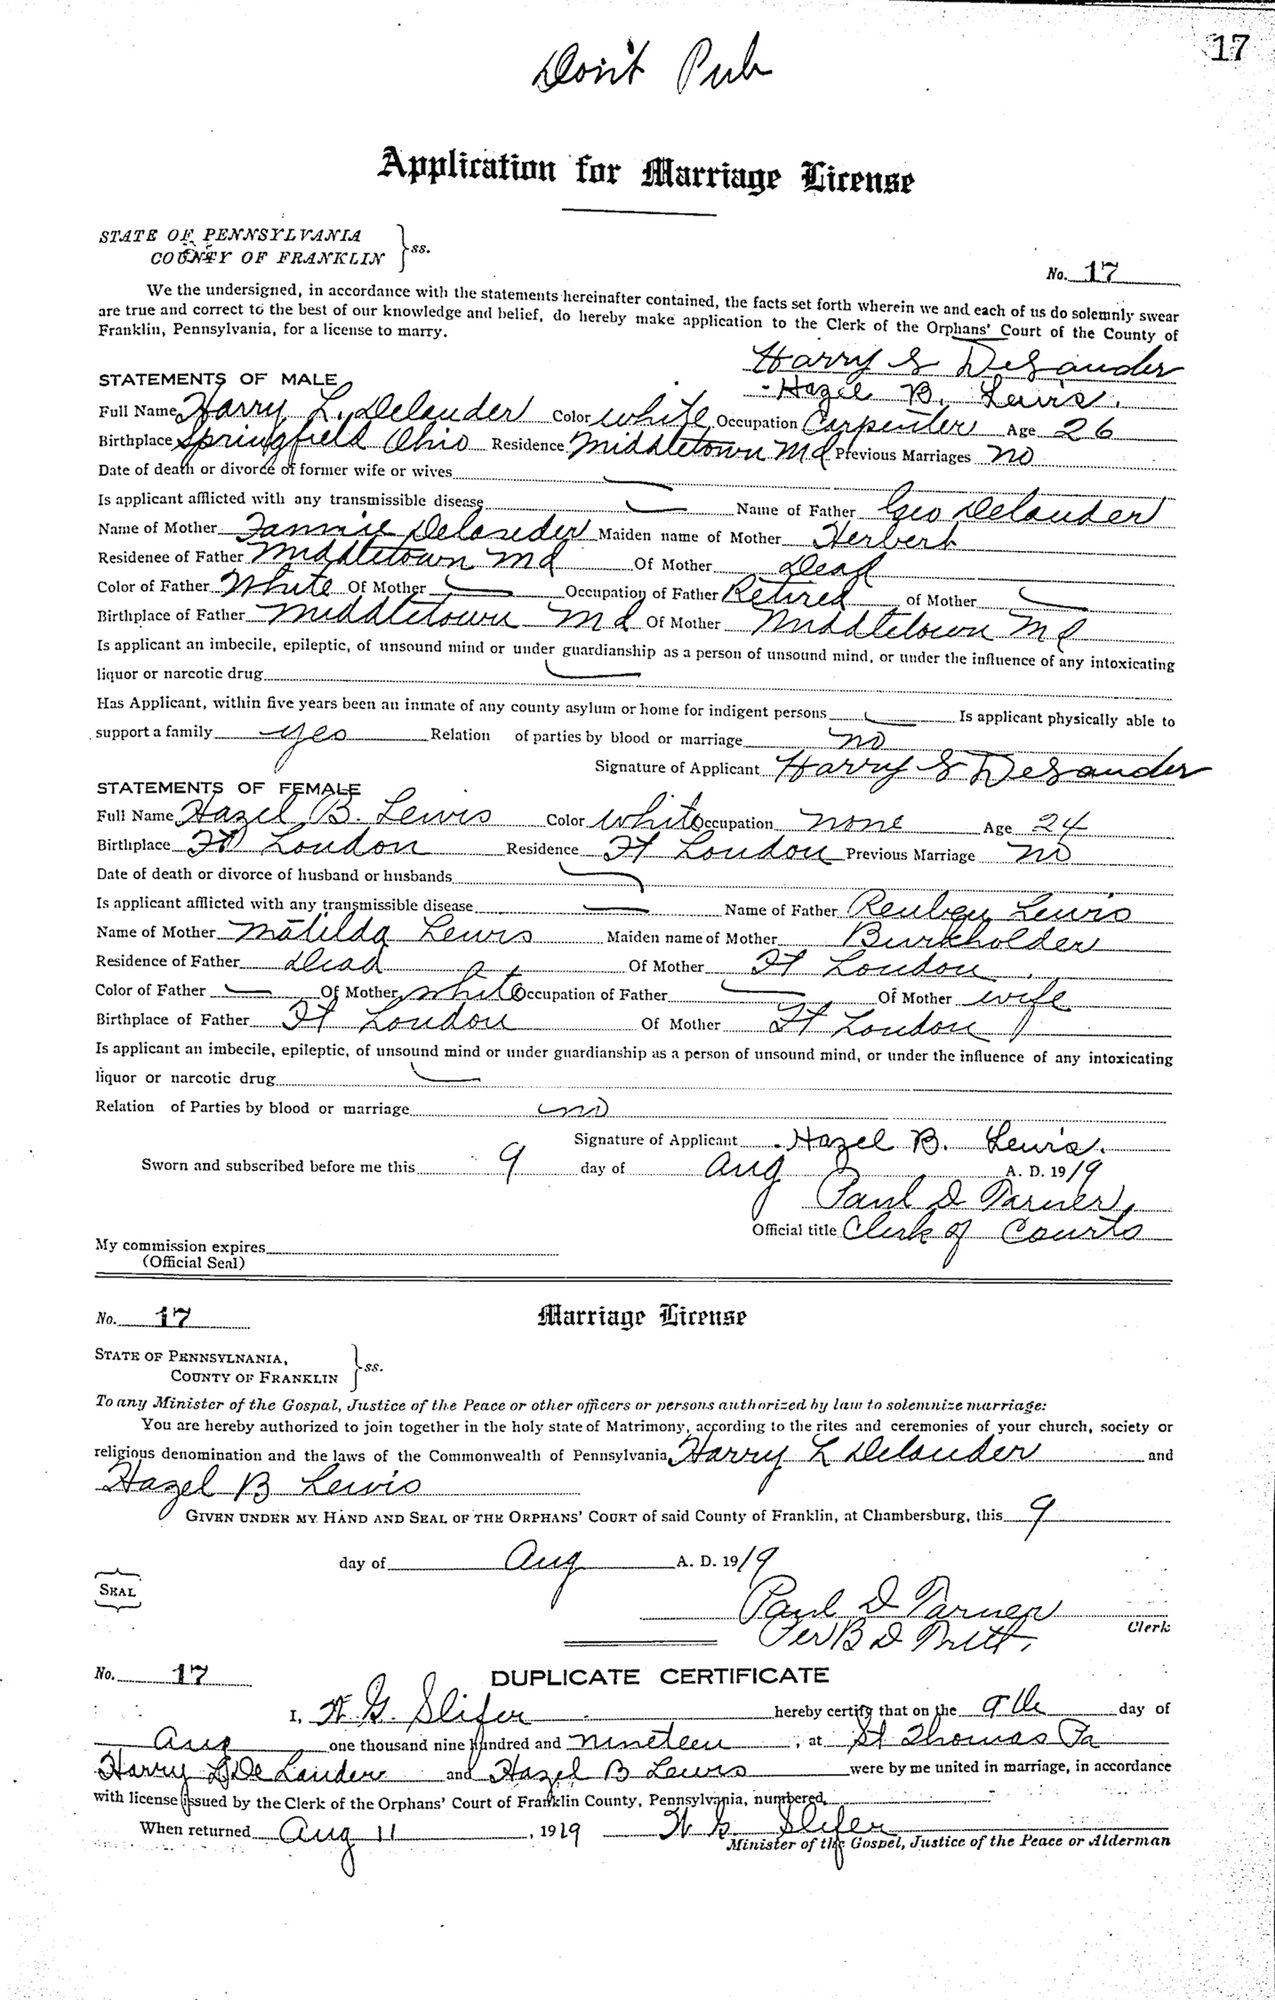 17
Don't Pub
Application for Marriage License
STATE OF PENNSYLVANIA
COUNTY OF FRANKLIN } ss.
No. 17
We the undersigned, in accordance with the statements hereinafter contained, the facts set forth wherein we and each of us do solemnly swear
are true and correct to the best of our knowledge and belief, do hereby make application to the Clerk of the Orphans' Court of the County of
Franklin, Pennsylvania, for a license to marry.
Harry L DeLauder
Hazel B. Lewis.
STATEMENTS OF MALE
Full Name Harry L. Delauder Color white Occupation Carpenter Age 26
Birthplace Springfield Ohio Residence Middletown Md Previous Marriages no
Date of death or divorce of former wife or wives
Is applicant afflicted with any transmissible disease Name of Father Geo Delauder
Name of Mother Fannie Delauder Maiden name of Mother Herbert
Residenee of Father Middletown Md Of Mother Dead
Color of Father White Of Mother Occupation of Father Retired of Mother
Birthplace of Father Middletown Md Of Mother Middletown Md
Is applicant an imbecile, epileptic, of unsound mind or under guardianship as a person of unsound mind, or under the influence of any intoxicating
liquor or narcotic drug
Has Applicant, within five years been an inmate of any county asylum or home for indigent persons Is applicant physically able to
support a family yes Relation of parties by blood or marriage no
Signature of Applicant Harry L DeLauder
STATEMENTS OF FEMALE
Full Name Hazel B. Lewis Color white Occupation none Age 24
Birthplace Ft Loudon Residence Ft Loudon Previous Marriage no
Date of death or divorce of husband or husbands
Is applicant afflicted with any transmissible disease Name of Father Reuben Lewis
Name of Mother Matilda Lewis Maiden name of Mother Burkholder
Residence of Father Dead Of Mother Ft Loudon
Color of Father Of Mother white Occupation of Father Of Mother wife
Birthplace of Father Ft Loudon Of Mother Ft Loudon
Is applicant an imbecile, epileptic, of unsound mind or under guardianship as a person of unsound mind, or under the influence of any intoxicating
liquor or narcotic drug
Relation of Parties by blood or marriage no
Signature of Applicant Hazel B. Lewis.
Sworn and subscribed before me this 9 day of Aug A. D. 1919
Paul D Tarner,
Official title Clerk of Courts
My commission expires
(Official Seal)
No. 17 Marriage License
STATE OF PENNSYLNANIA,
COUNTY OF FRANKLIN } ss.
To any Minister of the Gospal, Justice of the Peace or other officers or persons authorized by law to solemnize marriage:
You are hereby authorized to join together in the holy state of Matrimony, according to the rites and ceremonies of your church, society or
religious denomination and the laws of the Commonwealth of Pennsylvania, Harry L Delauder and
Hazel B Lewis
GIVEN UNDER MY HAND AND SEAL OF THE ORPHANS' COURT of said County of Franklin, at Chambersburg, this 9
day of Aug A. D. 1919
SEAL
Paul D Tarner
Clerk
Per B D
No. 17 DUPLICATE CERTIFICATE
I, W. G. Slifer hereby certify that on the 9th day of
Aug one thousand nine hundred and nineteen, at St Thomas Pa
Harry L De Lauder and Hazel B Lewis were by me united in marriage, in accordance
with license issued by the Clerk of the Orphans' Court of Franklin County, Pennsylvania, numbered
When returned Aug 11, 1919 W G Slifer
Minister of the Gospel, Justice of the Peace or Alderman